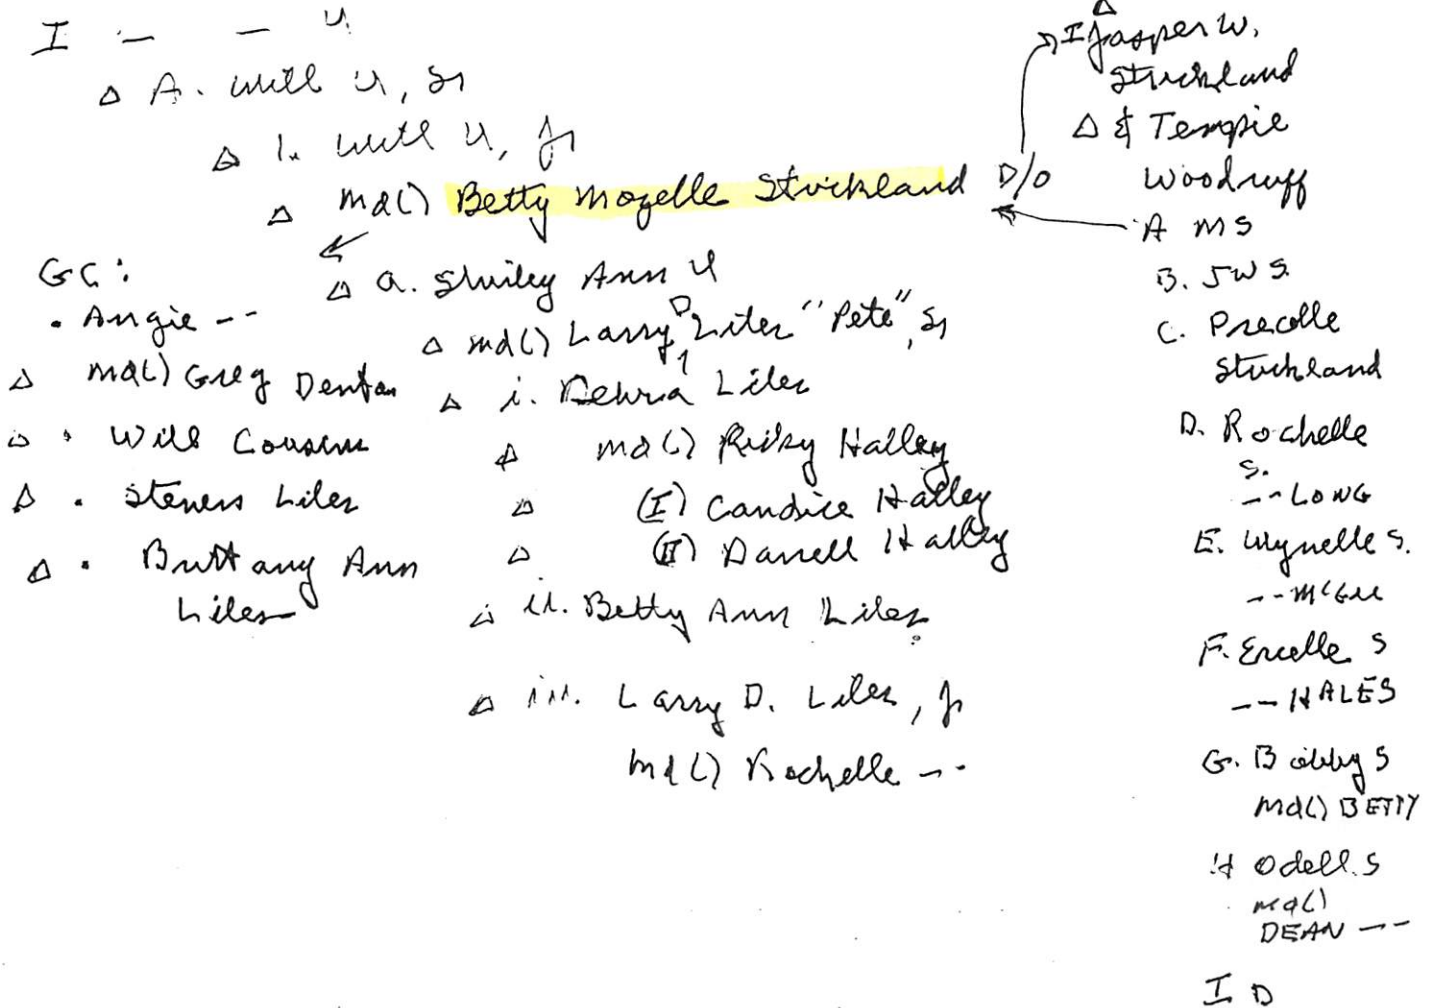 I — — U
Δ A. Will U, Sr
Δ 1. Will U, Jr
Δ md() Betty Mozelle Strickland D/O
Δ a. Shirley Ann U
Δ md() Larry D Liles "Pete", Sr
Δ i. Debra Liles
Δ md() Ricky Halley
Δ (I) Candice Halley
Δ (II) Darrell Halley
Δ ii. Betty Ann Liles
Δ iii. Larry D. Liles, Jr
md() Rochelle --
GC:
• Angie --
Δ md() Greg Denton
Δ • Will Cousins
Δ • Steven Liles
Δ • Brittany Ann
Liles
Δ
I Jasper W.
Strickland
Δ & Tempie
Woodruff
A MS
B. JWS.
C. Precolle
Strickland
D. Rochelle
S.
-- LONG
E. Wynelle S.
-- McGee
F. Ercelle S
-- HALES
G. Bobby S
md() BETTY
H Odell S
md()
DEAN --
I D